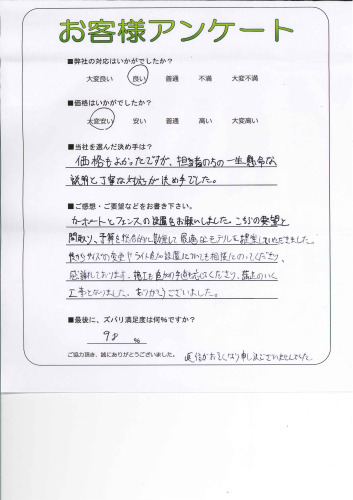 お客様アンケート
■弊社の対応はいかがでしたか?
大変良い 良い 普通 不満 大変不満
■価格はいかがでしたか?
大変安い 安い 普通 高い 大変高い
■当社を選んだ決め手は?
価格もよかったですが、担当者の方の一生懸命な
説明と丁寧な対応が決め手でした。
■ご感想・ご要望などをお書き下さい。
カーポートとフェンスの設置をお願いしました。こちらの要望と
間取り、予算を総合的に勘案して最適なモデルを提案していただきました。
サイズの変更やライト追加設置についても相談にのってくださり、
感謝しております。施工も 下さり、満足のいく
工事となりました。ありがとうございました。
■最後に、ズバリ満足度は何%ですか?
98 %
ご協力頂き、誠にありがとうございました。
返信がおそくなり申し訳ございませんでした